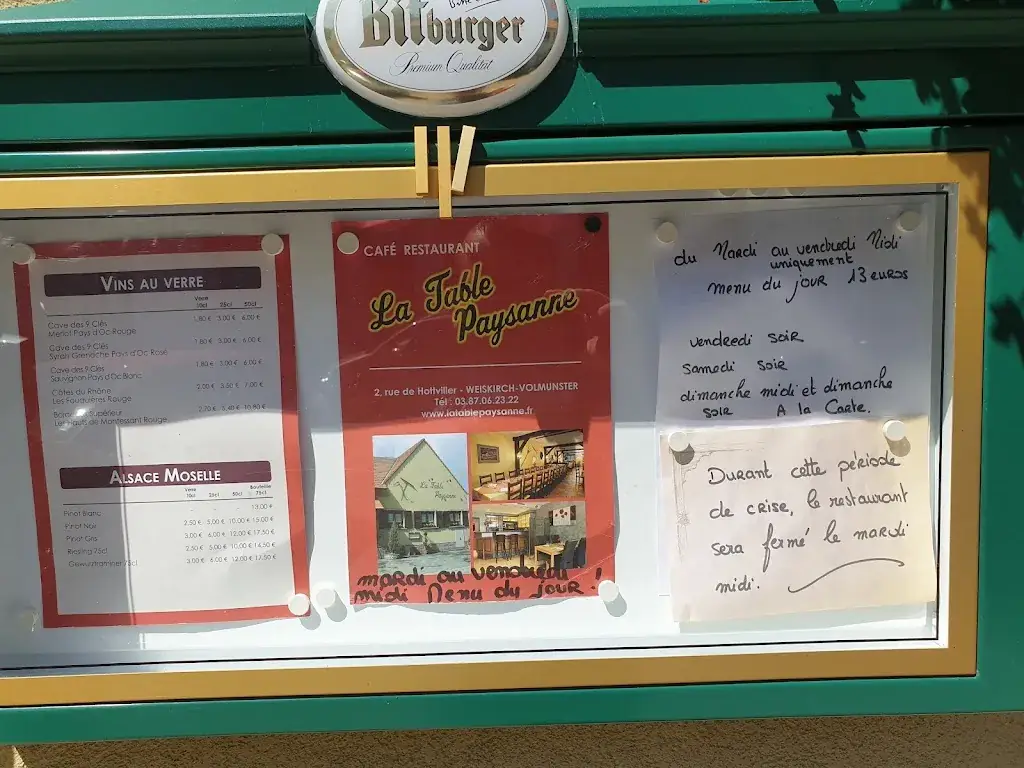 Bitburger
Premium Qualität
VINS AU VERRE
Verre
10cl 25cl 50cl
Cave des 9 Clés 1.80 € 3.00 € 6.00 €
Merlot Pays d'Oc Rouge
Cave des 9 Clés 1.80 € 3.00 € 6.00 €
Syrah Grenache Pays d'Oc Rosé
Cave des 9 Clés 1.80 € 3.00 € 6.00 €
Sauvignon Pays d'Oc Blanc
Côtes du Rhône 2.00 € 3.50 € 7.00 €
Les Rouge
Supérieur 2.70 € 5.40 € 10.80 €
Les Hauts de Montessant Rouge
ALSACE MOSELLE
Verre Bouteille
10cl 25cl 50cl 75cl
Pinot Blanc - - - 13.00 €
Pinot Noir 2.50 € 5.00 € 10.00 € 15.00 €
Pinot Gris 3.00 € 6.00 € 12.00 € 17.50 €
Riesling 75cl 2.50 € 5.00 € 10.00 € 14.50 €
Gewurztraminer 75cl 3.00 € 6.00 € 12.00 € 17.50 €
CAFÉ RESTAURANT
La Table
Paysanne
2, rue de Hottviller - WEISKIRCH-VOLMUNSTER
Tél : 03.87.06.23.22
www.latablepaysanne.fr
La Table
Paysanne
mardi au vendredi
midi Menu du jour !
du Mardi au vendredi Midi
uniquement
menu du jour 13 euros
vendredi soir
samedi soir
dimanche midi et dimanche
soir A la Carte.
Durant cette période
de crise, le restaurant
sera fermé le mardi
midi.